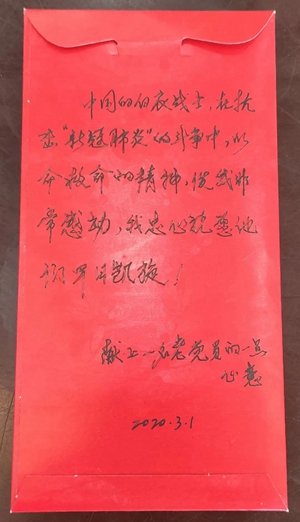 中国的白衣战士，在抗
击“新冠肺炎”的斗争中，以
命救命的精神，使我非
常感动，我忠心祝愿他
们早日凯旋！
献上一名老党员的一点
心意
2020.3.1